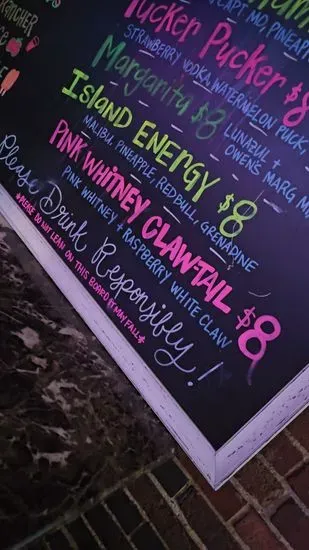 CAPT MO, PINEAPP
Tucker Pucker $8
STRAWBERRY VODKA, WATERMELON PUCK,
Margarita $8 LUNAZUL +
OWENS MARG MI
Island ENERGY $8
MALIBU, PINEAPPLE, REDBULL, GRENADINE
PINK WHITNEY CLAWTAIL $8
PINK WHITNEY + RASPBERRY WHITE CLAW
Please Drink Responsibly!
*PLEASE DO NOT LEAN ON THIS BOARD IT MAY FALL*